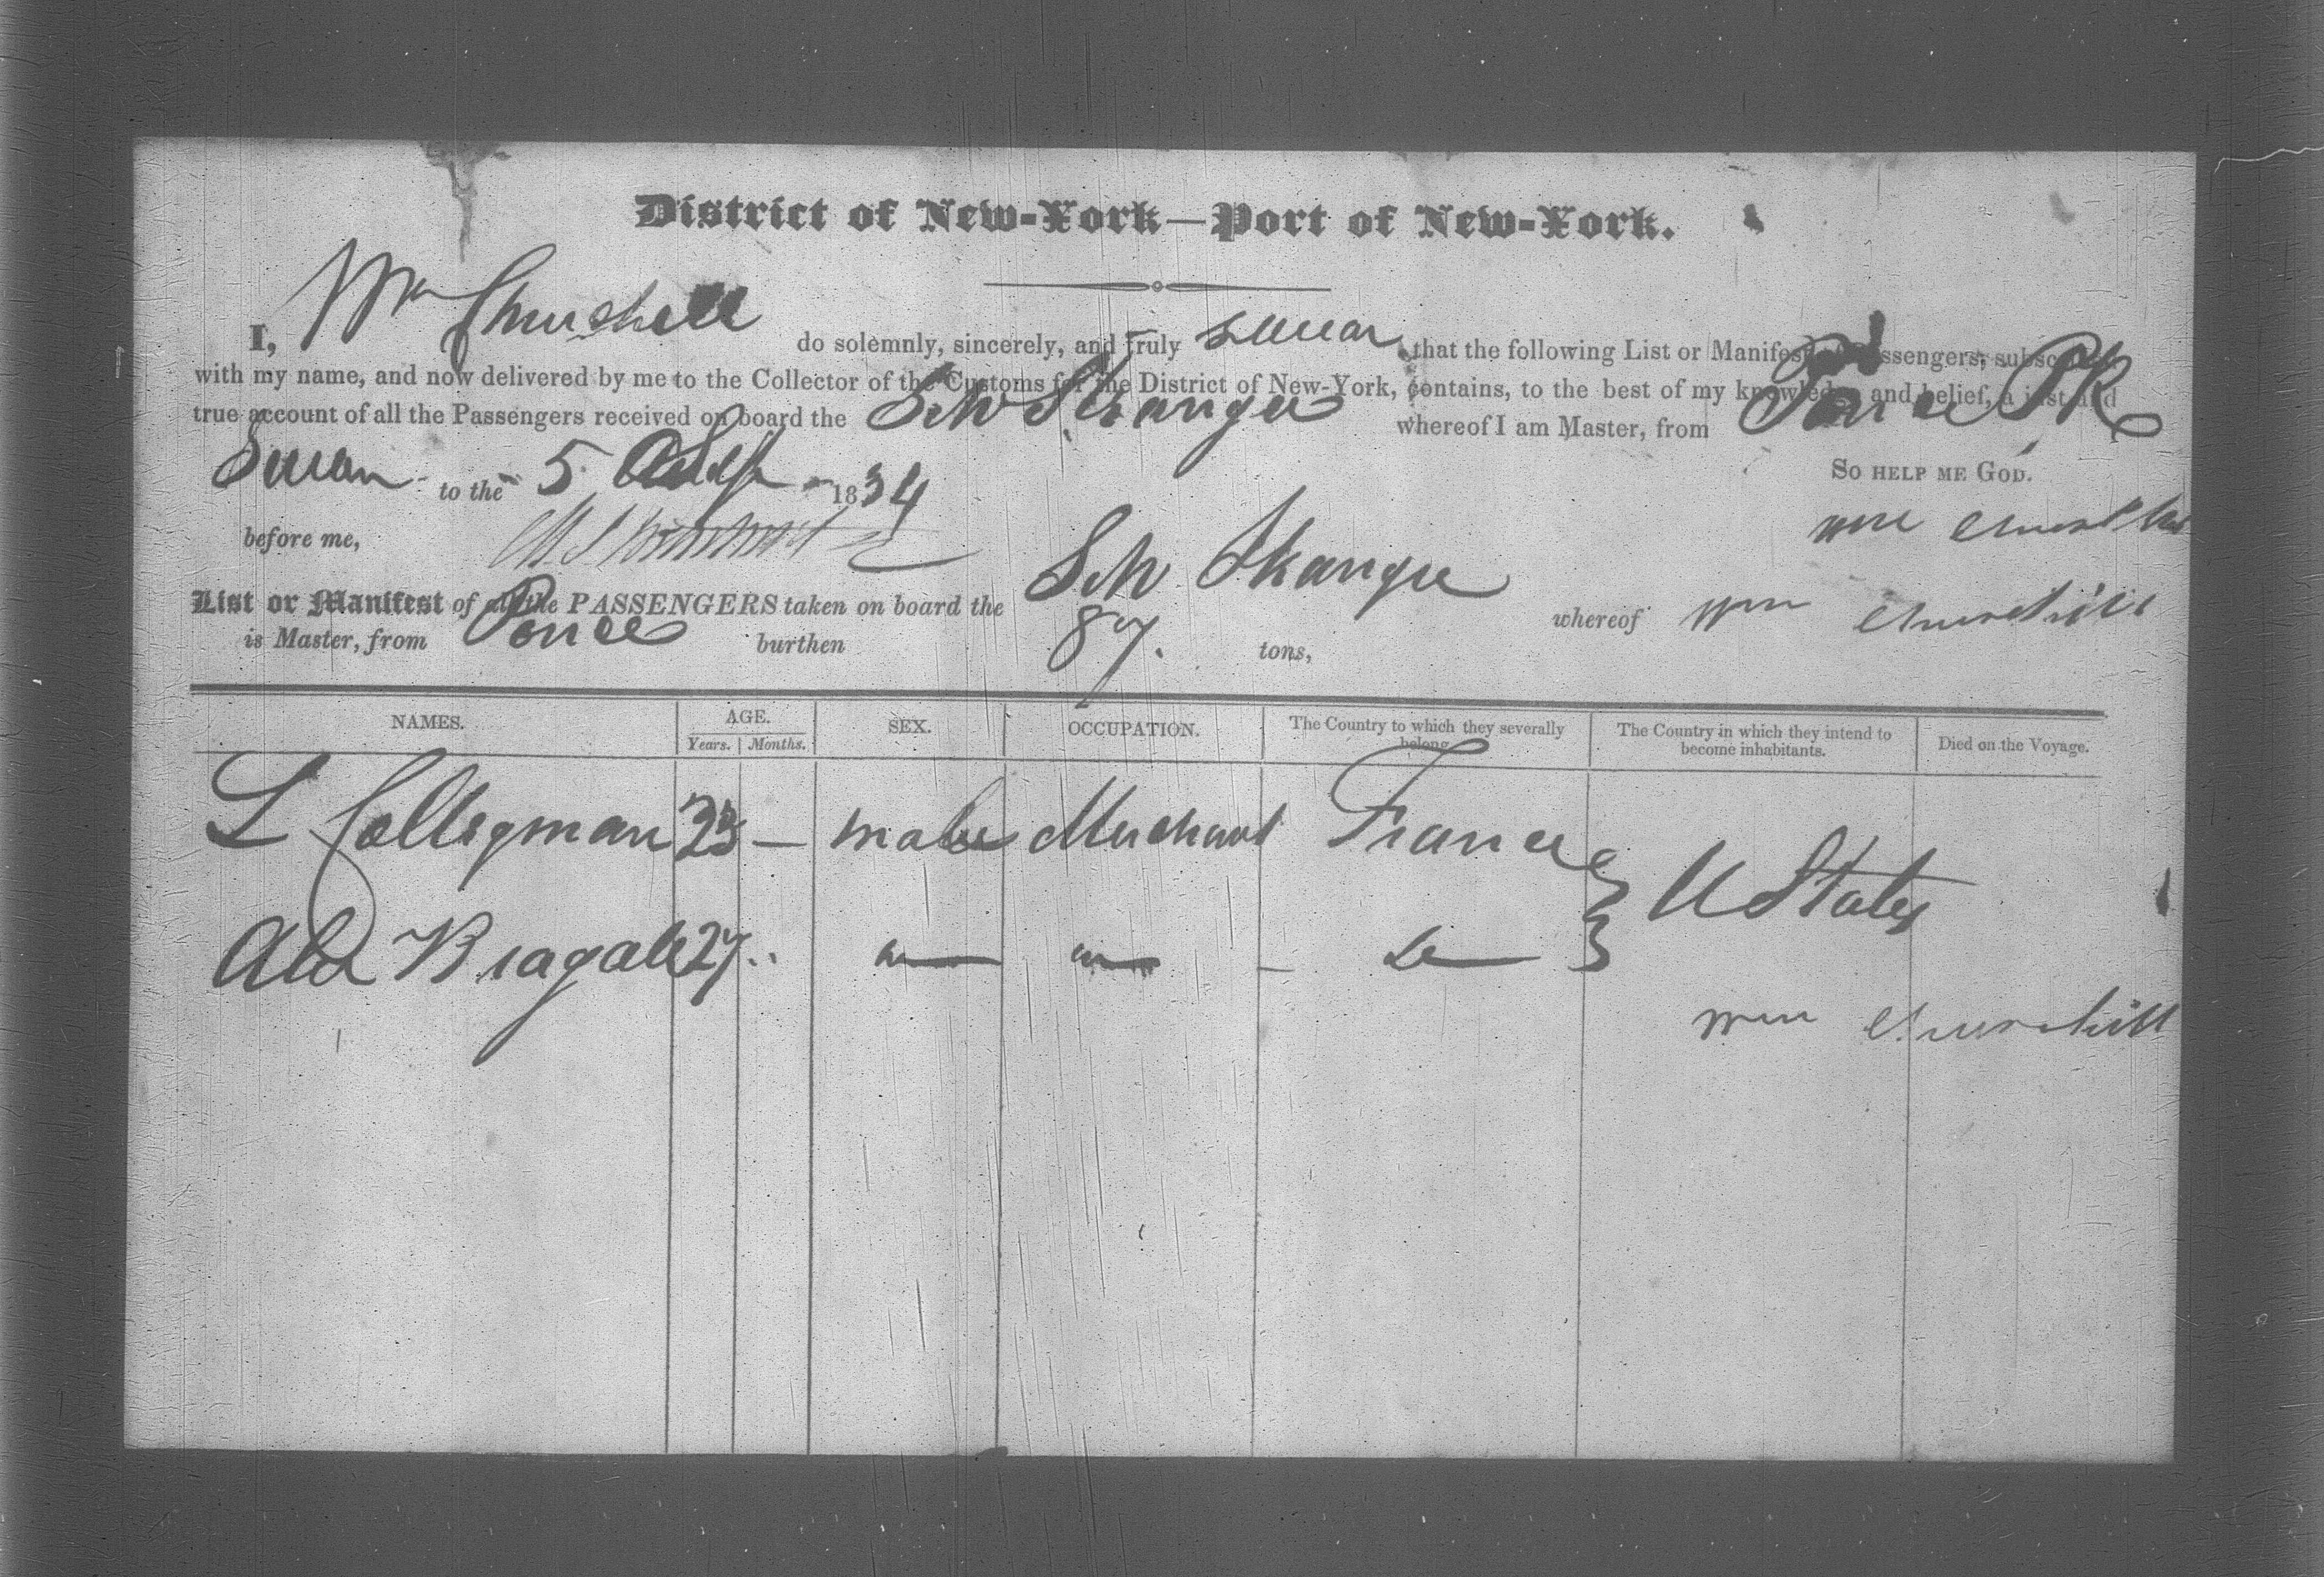 District of New-York—Port of New-York.
I, Wm Churchill do solemnly, sincerely, and truly swear that the following List or Manifest of Passengers, subscribed
with my name, and now delivered by me to the Collector of the Customs for the District of New-York, contains, to the best of my knowledge and belief, a just and
true account of all the Passengers received on board the Sch Stranger whereof I am Master, from Ponce PR
Sworn to the 5 1834
So HELP ME GOD.
before me,
Wm Churchill
List or Manifest of all the PASSENGERS taken on board the Sch Stranger whereof Wm Churchill
is Master, from Ponce burthen 87. tons,
NAMES. AGE. SEX. OCCUPATION. The Country to which they severally belong. The Country in which they intend to become inhabitants. Died on the Voyage.
Years. Months.
L 23 — male Merchant France U States
27 .. — — — Do —
Wm Churchill